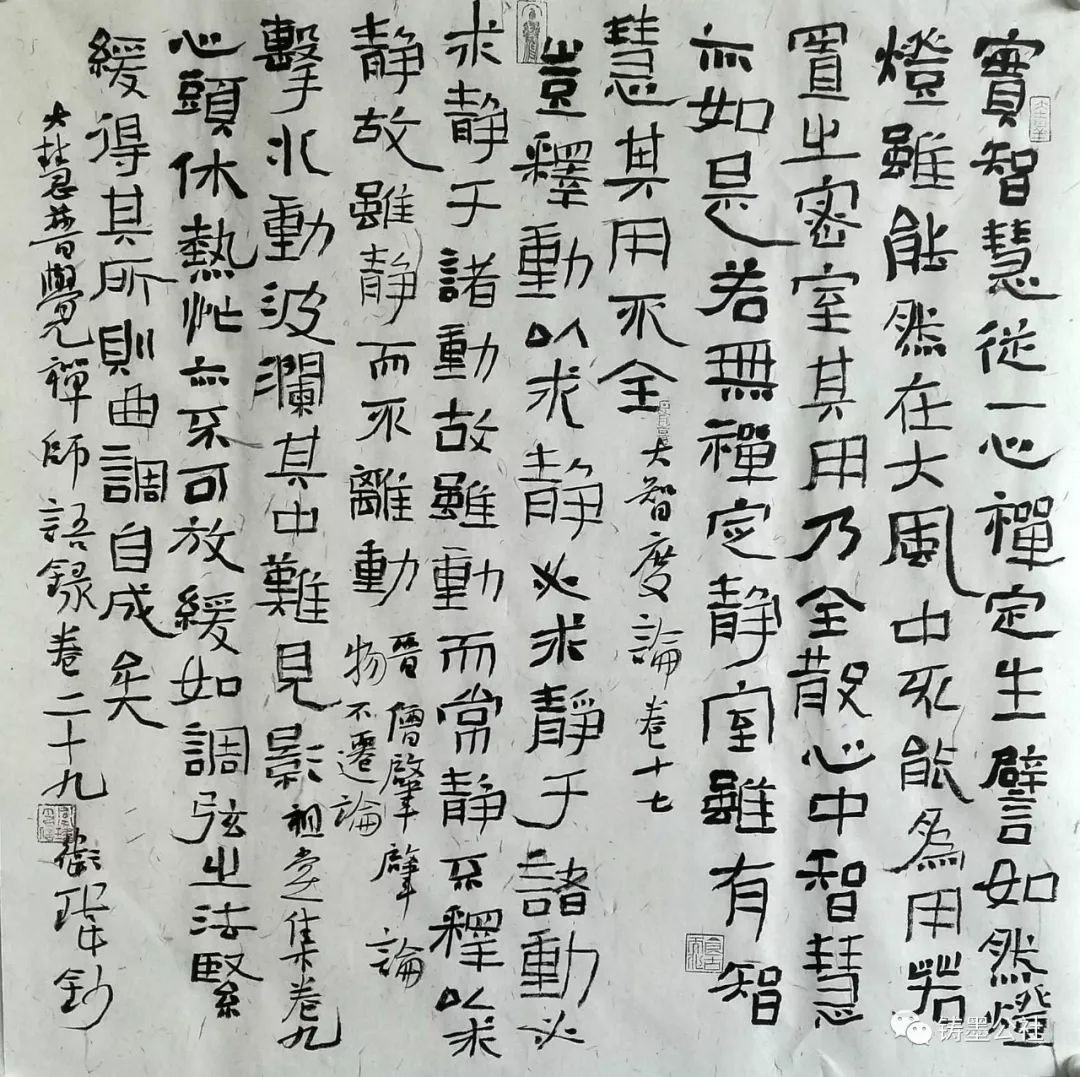 實智慧從一心禪定生譬如然燈
燈雖能然在大風中不能為用若
置之密室其用乃全散心中智慧
亦如是若無禪定静室雖有智
慧其用不全 大智度論卷十七
豈釋動以求静必求静于諸動必
求静于諸動故雖動而常静不釋以求
静故雖静而不離動
晉僧肇肇論
物不遷論
擊水動波瀾其中難見影 祖堂集卷九
心頭休熱忙亦不可放緩如調弦之法緊
緩得其所則曲調自成矣
大慧普覺禪師語録卷二十九
鈔
铸墨公社